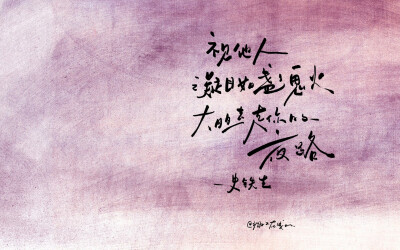 视他人
疑目如盏盏鬼火
大胆去走你的
夜路
—史铁生